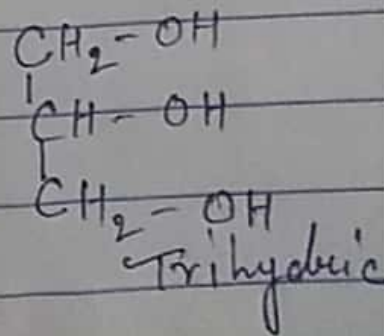 CH₂-OH
CH-OH
CH₂-OH
Trihydric